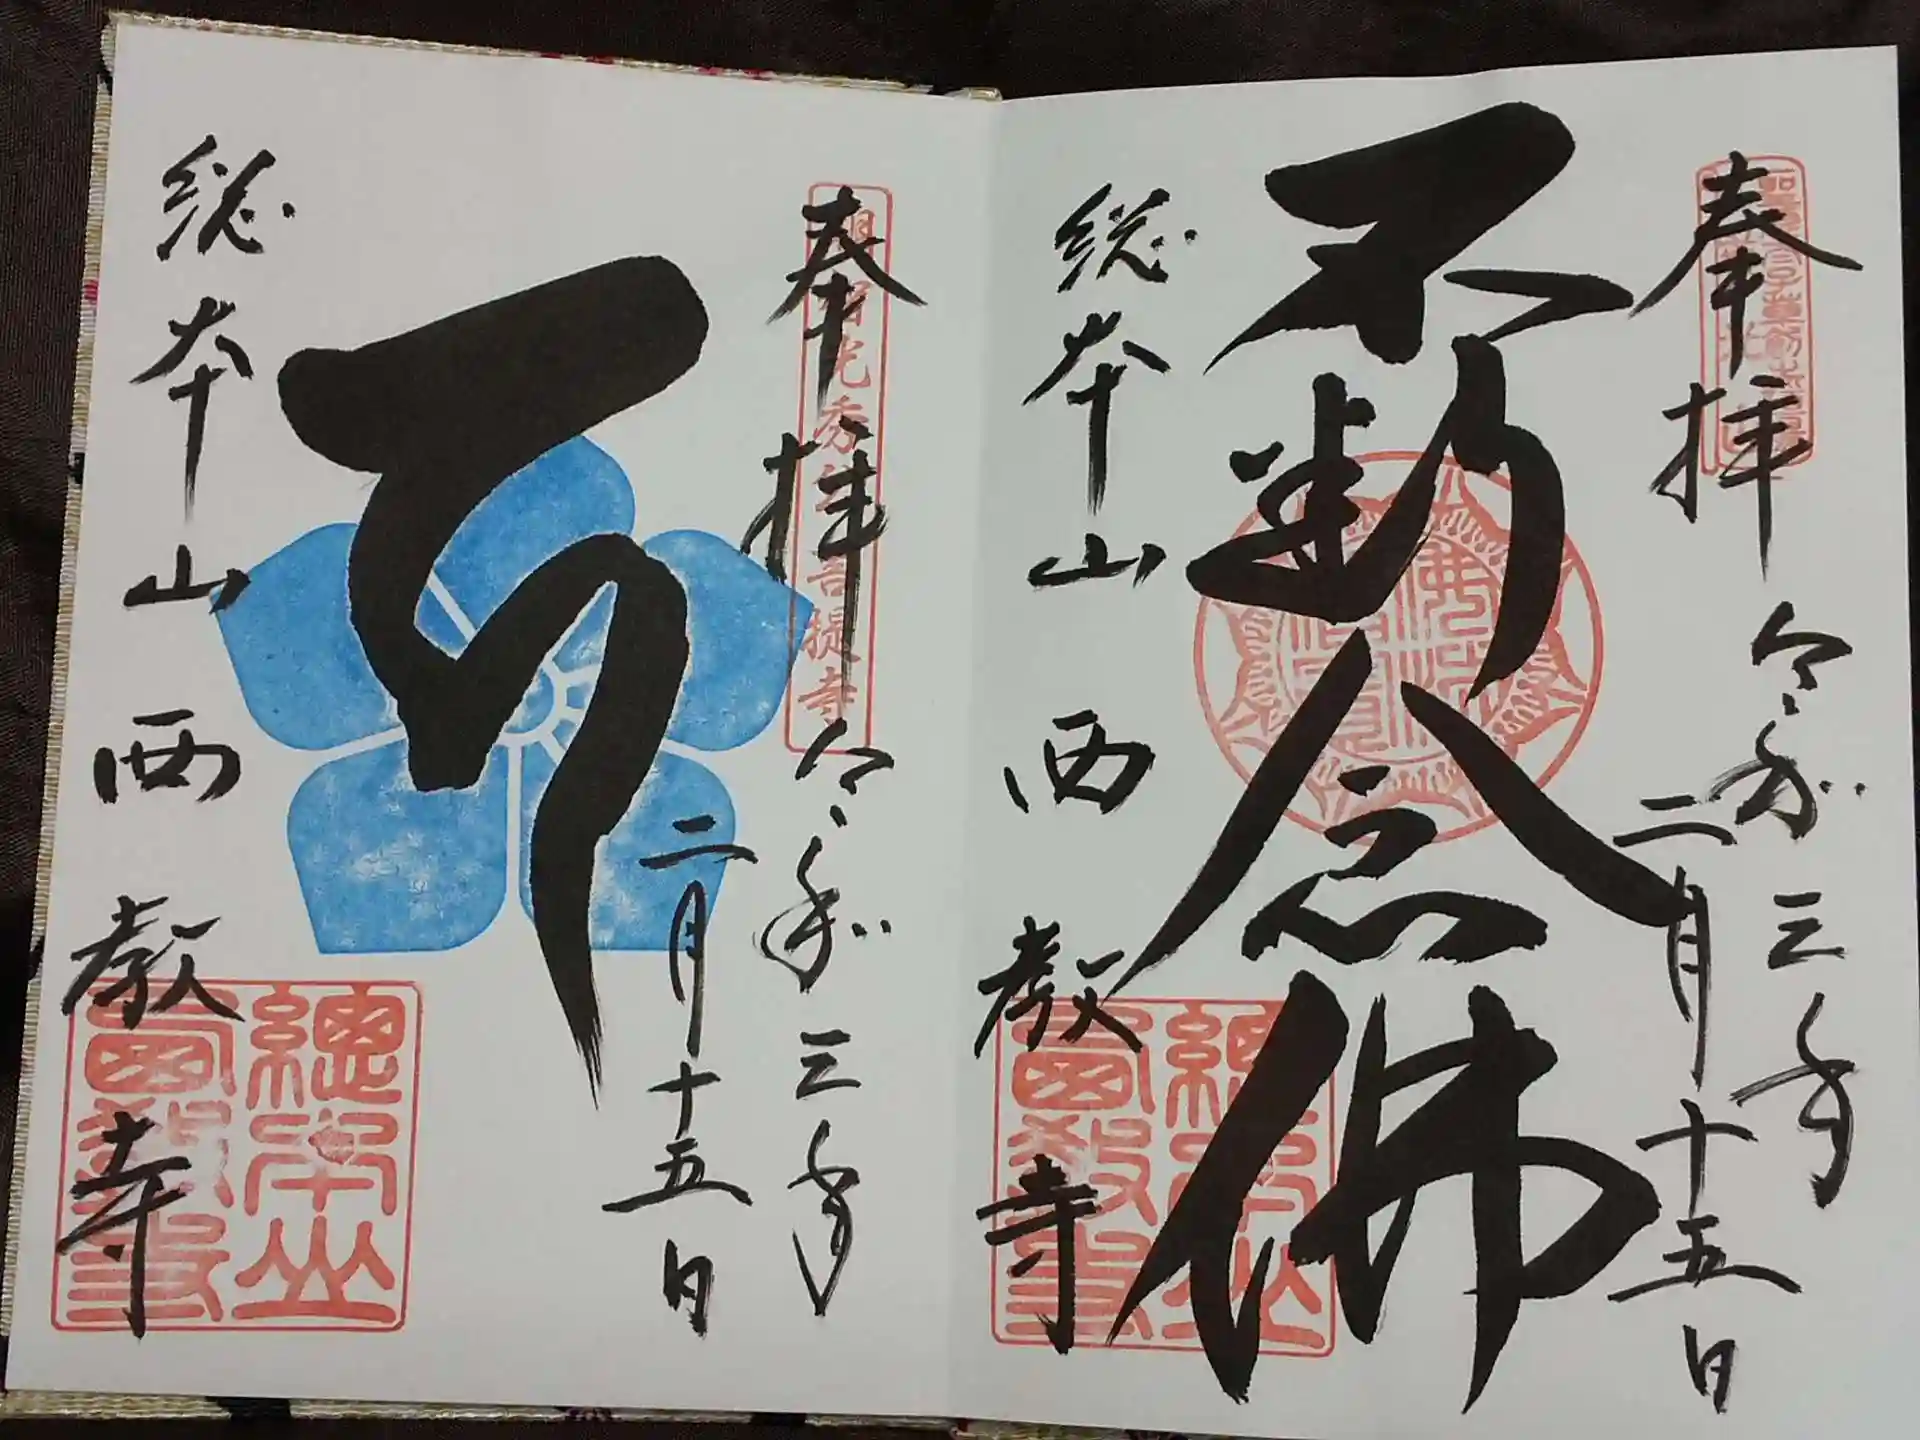 奉拝
令和三年
二月十五日
不断念佛
総本山西教寺
總本山
西教寺
奉拝
明智光秀公菩提寺
令和三年
二月十五日
総本山西教寺
總本山
西教寺